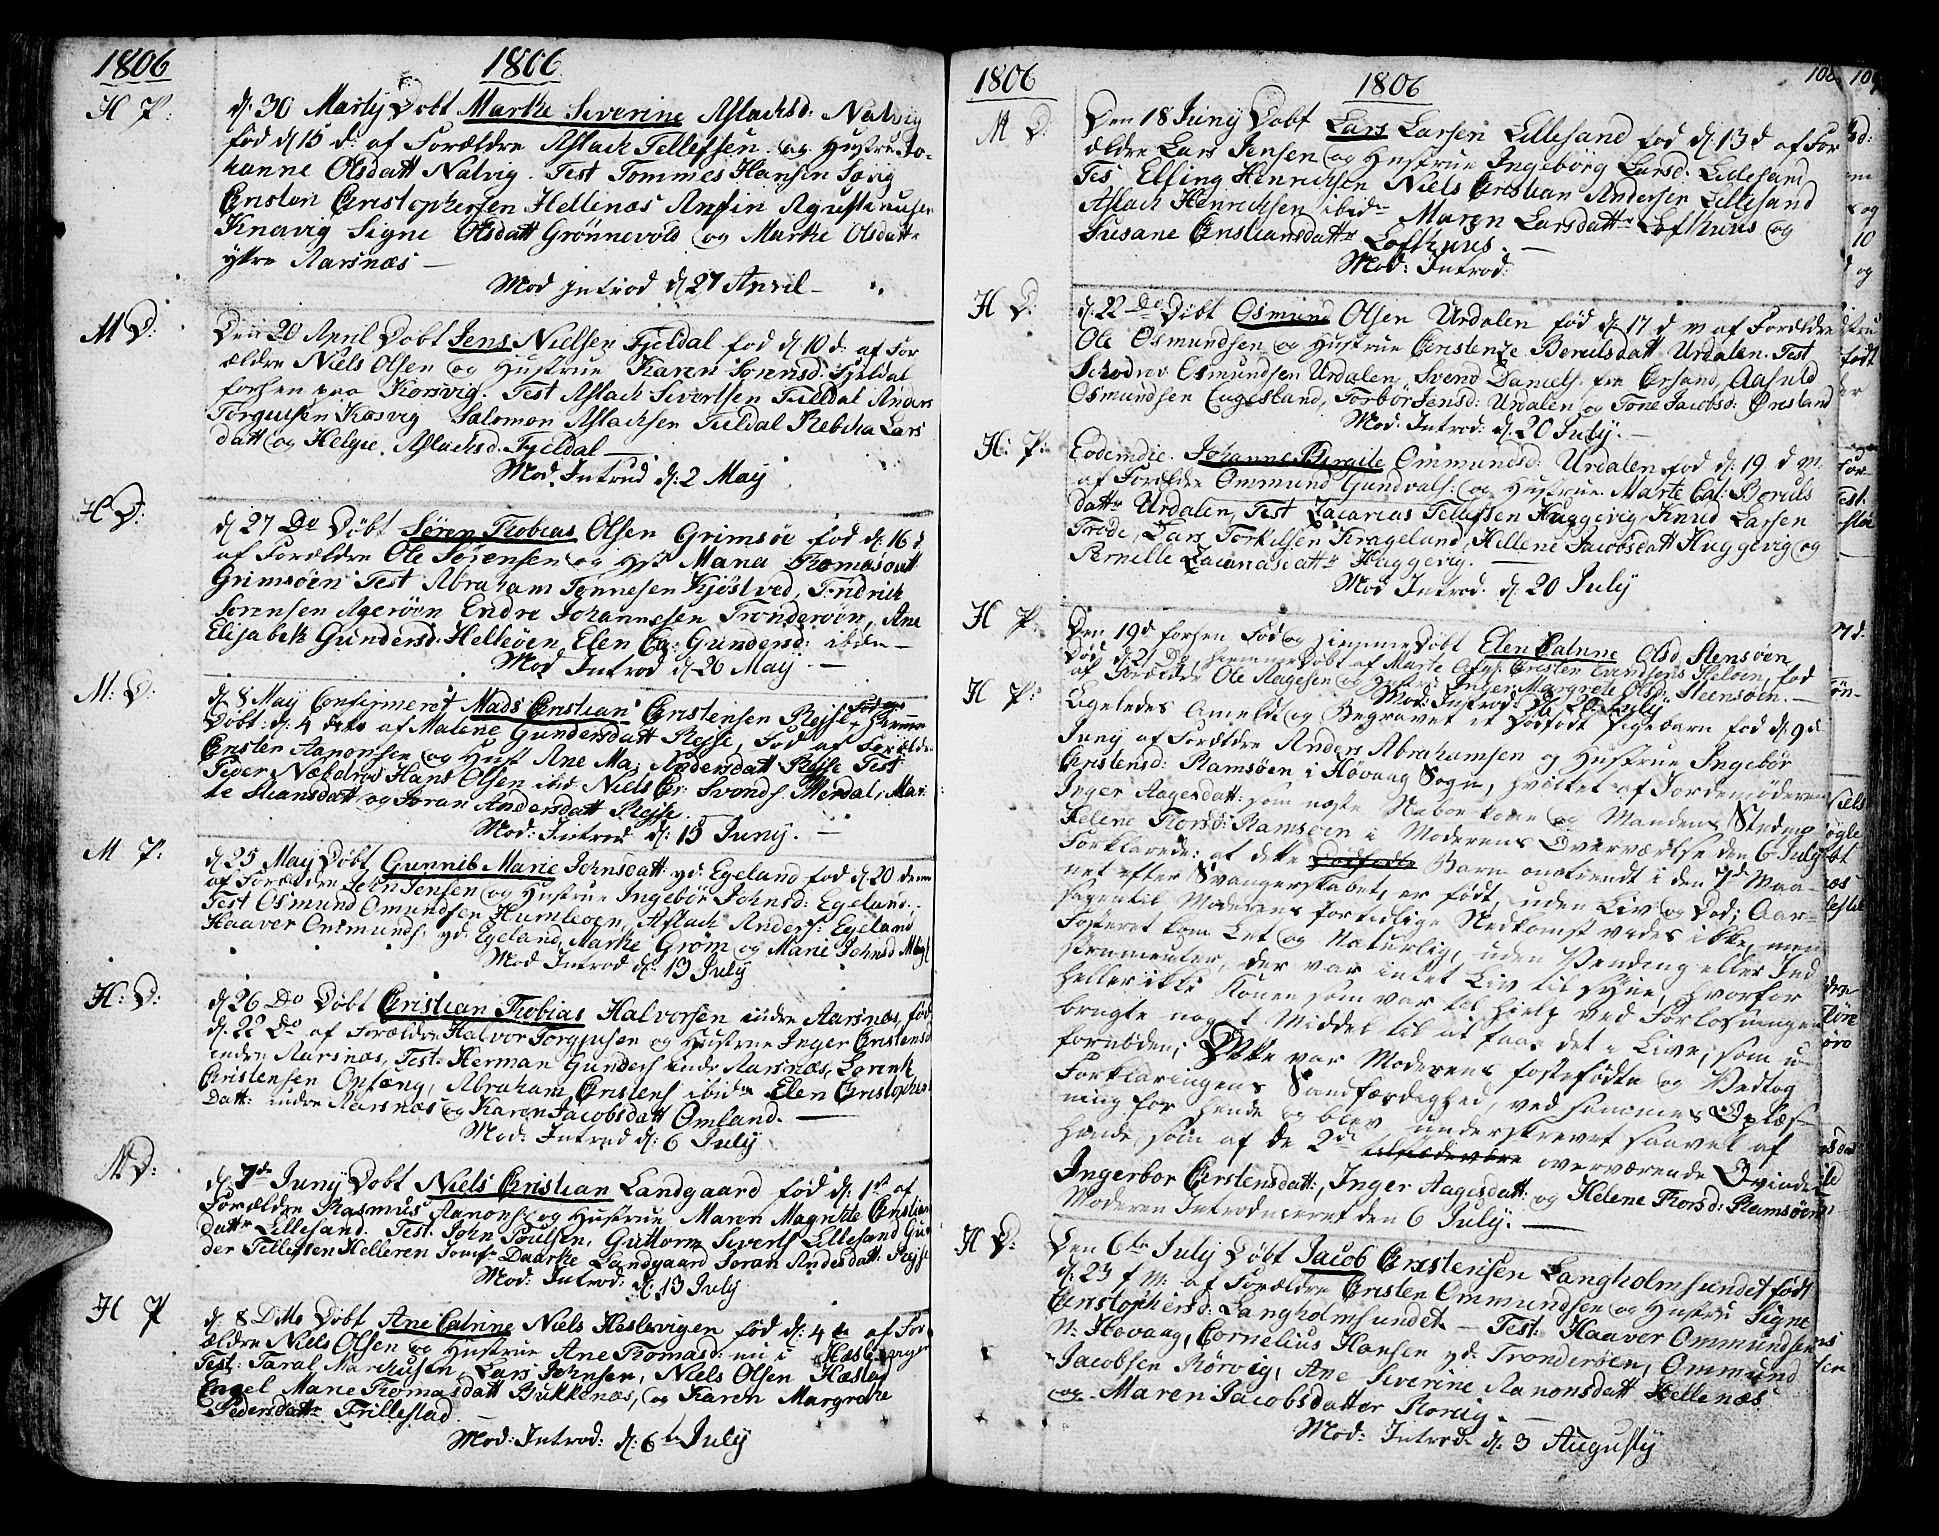 1806 1806
H P: d: 30 Martij Døbt Marthe Severine Aslachsd: Natvig
fød d: 15 d: af Forældre Aslach Tellefsen og Hustrue Jo-
hanne Olsdatt Natvig. Test Tommes Hansen Sævig
Christen Christophersen Hellenæs Anfin
Knavig Signe Olsdatt Grönnevold og Marthe Olsdattr
ytre Aarsnæs —
Mod introd d: 27 April —
M D: Den 20 April Døbt Jens Nielsen Fjeldal fød d: 10 d: af For
ældre Niels Olsen og Hustrue Karen Sørensd: Fjeldal
forhen paa Korsvig. Test Aslach Sivertsen Fieldal Anders
Torgiusen Kosvig Salomon Aslachsen Fieldal Rebecha Lars
datt og Helgie Aslachsd. Fjeldal —
Mod. Introd d: 2 May
H D: d: 27 Do Døbt Søren Thobias Olsen Grimsøe fød d: 16 d
af Forældre Ole Sørensen og Hust Maria Thomasdatt
Grimsøen Test Abraham Tønnesen Kjøstved, Fridrich
Sørensen Agerøen Endre Johannesen Trønderøen, Ane
Elisabeth Gundersd. Helleøen Elen Ca: Gundersd: ibden —
Mod Introd d: 26 May —
M: D: d: 8 May Confirmeret Mads Christian Christensen Rejse, Hiemme
Døbt d: 4 dito af Malene Gundersdatt Rejse, Fød af Forældre
Christen Aanonsen og Hust Ane Ma: Andersdatt Rejse Test
Peder Næbdal Hans Olsen ibid Niels Chr: Svends Merdal, Mar
the Stiansdatt og Søran Andersdatt Rejse.
Mod: Introd d: 15 Juny. —
M P: d: 25 May Døbt Gunnild Marie Johnsdatt yd: Egeland fød d: 20 denne
af Forældre John Jensen og Hustrue Ingebør Johnsd: Egeland.
Test Osmund Omundsen Humleøen, Aslach Anders: Egeland
Haaver Ommunds: yd: Egeland, Marthe Grøm og Marie Johnsd
Mod Introd d: 13 July
H: D: d: 26 Do Døbt Christian Thobias Halvorsen indre Aarsnæs, fød
d: 22 Do af Forældre Halvor Torgjusen og Hustrue Inger Christensd
indre Aarsnæs, Test: Herman Gunders indre Aarsnæs, Lorentz
Christensen Opfæng, Abraham Christens ibidm Elen Christopher
Datt: indre Aarsnæs og Karen Jacobsdatt Omland. —
Mod: Introd d: 6 July
M D: d: 7de Juny Døbt Niels Christian Landgaard fød d: 1st af
Forældre Rasmus Aanons og Hustrue Maren Magrethe Christian
datt Lillesand. Test: John Poulsen, Guttorm Siverts Lillesand Gun
der Tellefsen Helleren Landgaard Søran Andersdatt: Rejse
Mod: Introd: d: 13 July
H P d: 8 Ditto Døbt Ane Catrine Niels Heslevigen fød d: 4 de af For
ældre Niels Olsen og Hustrue Ane Thomasd: nu i Hæslevigen
Test: Taral Marchusen, Lars Johnsen, Niels Olsen Hæslev
Engel Marie Thomasdatt Bukkenæs, og Karen Margrethe
Pedersdattr Trillestad. —
Mod: Introd: d: 6te July
1806 1806 108
M D: Den 18 Juny Døbt Lars Larsen Lillesand fød d: 13 d af For
ældre Lars Jensen og Hustrue Ingeborg Larsd: Lillesand
Tes Elfing Henrichsen Niels Christian Andersen Lillesand
Aslach Henrichsen ibidm Maren Larsdattr Lofthuus og
Susane Christiansdattr Lofthuus. —
Mod: Introd:
H D: d: 22 Do Døbt Osmund Olsen Urdalen fød d: 17 d m af Forældre
Ole Osmundsen og Hustrue Christenze Berulsdatt Urdalen. Test
Osmundsen Urdalen, Svend Daniels. fra Chrsand, Aasuld
Osmundsen Eugesland, Torbör Jensd: Urdalen og Tone Jacobsd: Ørisland
Mod: Introd: d: 20 July. —
H: P: Eodemdie. Johanne Birgite Ommundsd: Urdalen fød d: 19 d m.
af Forældre Ommund Gundvals: og Hustrue Marte Cat: Beruls
dattr Urdalen, Test Zacarias Tellefsen Huggevig, Knud Larsen
Trøde, Lars Torkilsen Krageland, Hellene Jacobsdatt Huggevig og
Pernille Zacariasdattr Huggevig. —
Mod Introd: d: 20 July
H P: Den 19d forhen Fød og HjemmeDøbt Elen Catrine Olsd Steensøen
Død d: 21 Do, hiemmeDøbt af Marte Christen Evensens Heløen, fød
af Forældre Ole Aagesen og Hustrue Inger Margrete Olsd: Steensøen. —
Mod: Introd: d: 20 July
H P: Ligeledes Anmeldt og Begravet et Dødfødt Pigebarn fød d: 9 d
Juny af Forældre Anders Abrahamsen og Hustrue Ingebør
Christensd: Ramsøen, i Høvaag Sogn, hvilket af Jordemoderen
Inger Aagesdatt: som næste Naboe kone og Mandens Stedmo
Helene Thorsd: Ramsøen i Moderens Overværelse den 6 July
Forklarede: at dette Dødfødte Barn omtrendt i den 7de Maa-
net efter Svangerskabet, er født, uden Liv og Død; Aar-
sagen til Moderens fortidlige Nedkomst vides ikke, men
Fosteret kom Let og Naturlig, uden Vending eller In
strumenter, der var intet Liv til syne, hvorfor
heller ikke Konen som var til hielp ved Forløsningen
brugte noget Middel til at faae det i Live, som u-
fornøden; Dette var Moderens førstefødte og Vedtog
Forklaringens Sandfærdighed, ved sammes Oplæs-
ning for hende og blev underskrevet saavel af
hende, som af de 2de tilstedeværen overværende Qvinder
Ingerbor Cerstensdatt:, Inger Aagesdatt: og Helene Thorsd: Ramsøen
Moderen Introduceret den 6 July. —
H D: Den 6te July Døbt Jacob Christensen Langholmsundet født
d: 23 f M: af Forældre Christen Ommundsen og Hustru Signe
Christophersd: Langholmsundet — Test: Haaver Ommundsen
N: Høvaag, Cornelius Hansen yd: Trønderøen, Ommund
Jacobsen Rørvig, Ane Severine Aanonsdatt Hellenæs
og Maren Jacobsdatter Rørvig. —
Mod: Introd: d: 3 Augusty